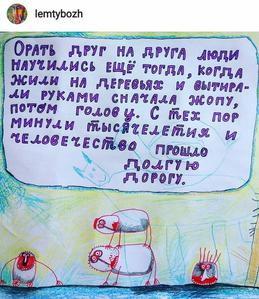 lemtybozh
ОРАТЬ ДРУГ НА ДРУГА ЛЮДИ
НАУЧИЛИСЬ ЕЩЁ ТОГДА, КОГДА
ЖИЛИ НА ДЕРЕВЬЯХ И ВЫТИРА-
ЛИ РУКАМИ СНАЧАЛА ЖОПУ,
ПОТОМ ГОЛОВУ. С ТЕХ ПОР
МИНУЛИ ТЫСЯЧЕЛЕТИЯ И
ЧЕЛОВЕЧЕСТВО ПРОШЛО
ДОЛГУЮ
ДОРОГУ.